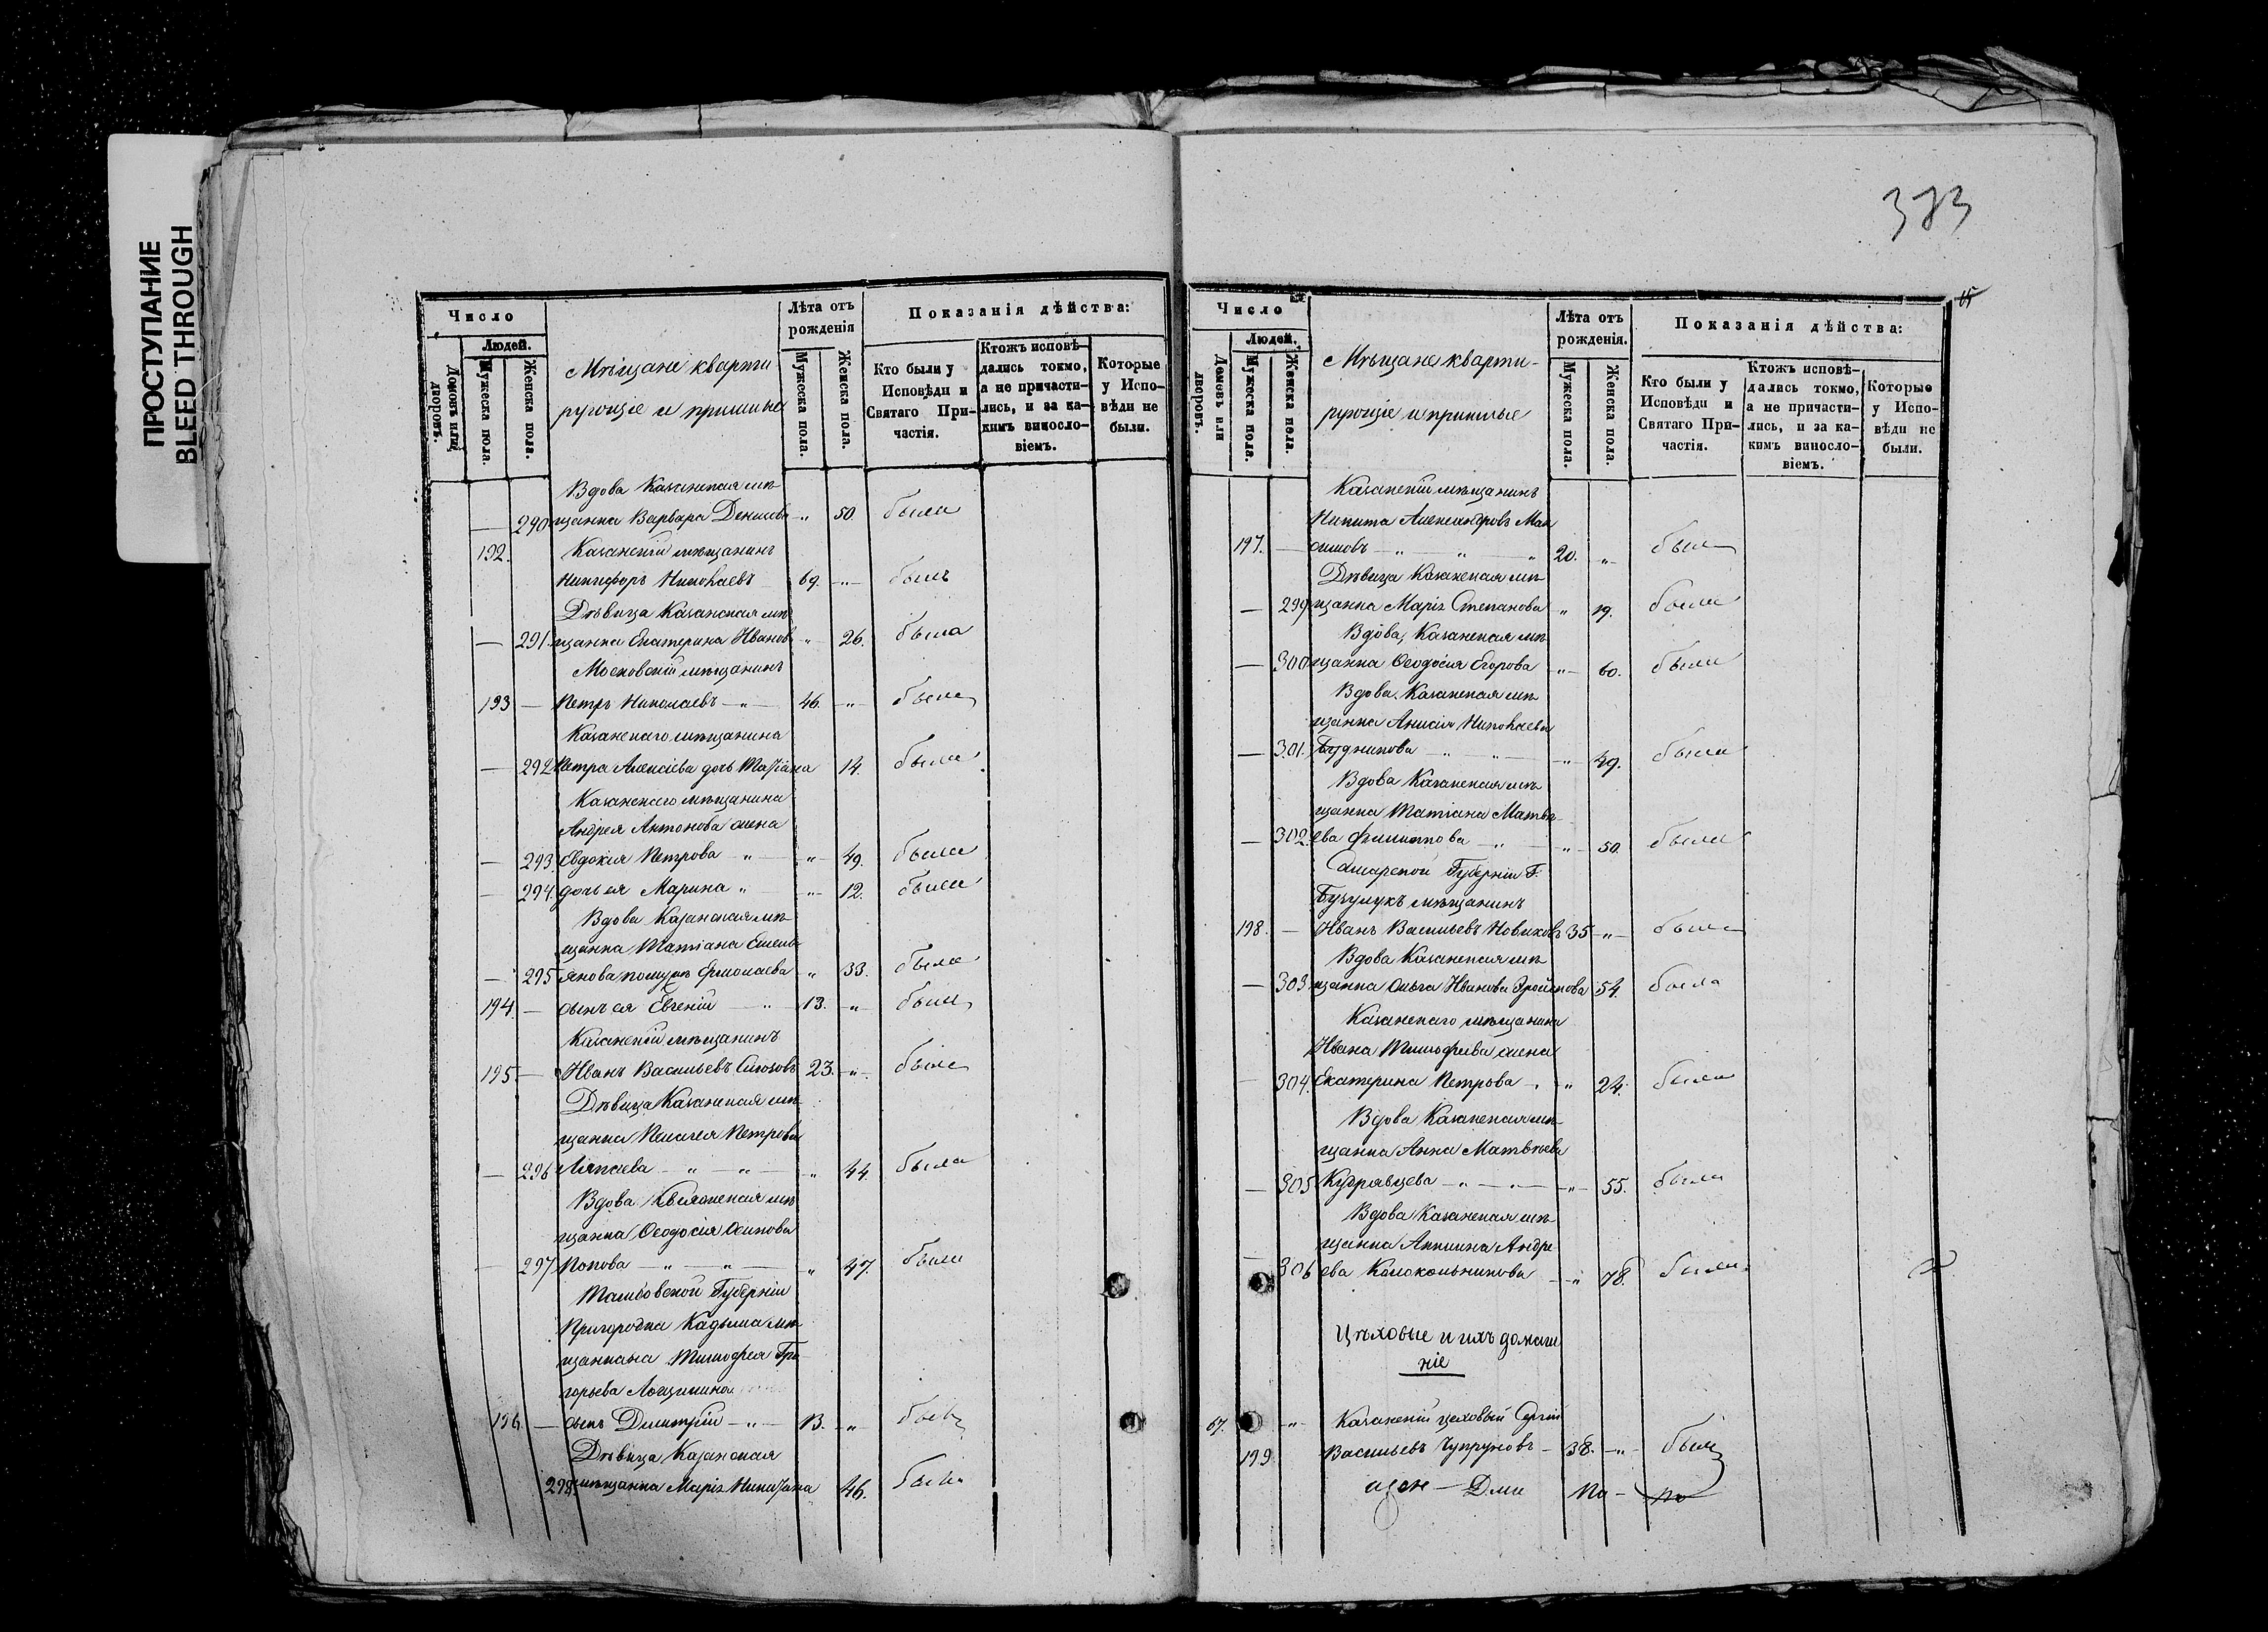 ПРОСТУПАНИЕ
BLEED THROUGH
373
15
Число
Людей.
Домовъ или дворовъ.
Мужеска пола.
Женска пола.
Мѣщане кварти
рующіе и пришлые
Лѣта отъ рожденія
Мужеска пола.
Женска пола.
Показанія дѣйства:
Кто были у Исповѣди и Святаго При-частія.
Ктожъ исповѣ-дались токмо, а не причасти-лись, и за ка-кимъ винословіемъ.
Которые у Испо-вѣди не были.
Вдова Казанская мѣ-
— 290 щанка Варвара Денисова " 50. была
192. Казанскій мѣщанинъ
Никифоръ Николаевъ 69. " былъ
Дѣвица Казанская мѣ
— 291. щанка Екатерина Иванов " 26. была
Московскій мѣщанинъ
193 — Петръ Николаевъ — " — 46. " былъ
Казанскаго мѣщанина
— 292 Петра Алексѣева дочь Татіана 14. была
Казанскаго мѣщанина
Андрея Антонова жена
— 293. Евдокія Петрова — " — " 49. была
— 294. дочь ея Марина " — " 12. была
Вдова Казанская мѣ-
щанка Татіана Емель
— 295 янова по мужѣ Ермолаева " 33. была
194. — сынъ ея Евгеній — " 13. " былъ
Казанскій мѣщанинъ
195. — Иванъ Васильевъ 23. " былъ
Дѣвица Казанская мѣ
щанка Пелагея Петрова
— 296 Ляпаева — " — " — " 44. была
Вдова мѣ
щанка Ѳеодосія Осипова
— 297 Попова — " — " — " 47. была
Тамбовской Губерніи
Пригородка Кадыма мѣ
щанина Тимофея Гри
горьева Лощинина
196. — сынъ Димитрій — " — 13. " былъ
Дѣвица Казанская
298 мѣщанка Марія 46. была
Число
Людей.
Домовъ или дворовъ.
Мужеска пола.
Женска пола.
Мѣщане кварти-
рующіе и пришлые
Лѣта отъ рожденія.
Мужеска пола.
Женска пола.
Показанія дѣйства:
Кто были у Исповѣди и Святаго При-частія.
Ктожъ исповѣ-дались токмо, а не причасти-лись, и за ка-кимъ винословіемъ.
Которые у Испо-вѣди не были.
Казанскій мѣщанинъ
Никита Александровъ Мак
197. — симовъ — " — " — " 20. " былъ
Дѣвица Казанская мѣ
— 299 щанка Марія Степанова " 19. была
Вдова, Казанская мѣ
— 300 щанка Ѳеодосія Егорова " 60. была
Вдова Казанская мѣ
щанка Анисія Николаева
— 301. Будникова — " — " — " 49. была
Вдова Казанская мѣ
щанка Татіана Матвѣ-
— 302. ева Филиппова — " — " 50. была
Самарской Губерніи Г.
Бугулукъ мѣщанинъ
198. — Иванъ Васильевъ Новиковъ 35 " былъ
Вдова Казанская мѣ
— 303. щанка Ольга Иванова 54. была
Казанскаго мѣщанина
Ивана Тимофеева жена
— 304. Екатерина Петрова — " " 24. была
Вдова Казанская мѣ-
щанка Анна Матвѣева
— 305 Кудрявцева — " — " — " 55. была
Вдова Казанская мѣ-
щанка Акилина Андре
— 306 ева Колокольникова — " 78. была
Цѣховые и ихъ домаш
ніе
67. " Казанскій цеховый Сергій
199. Васильевъ Чупруновъ — 38. " былъ